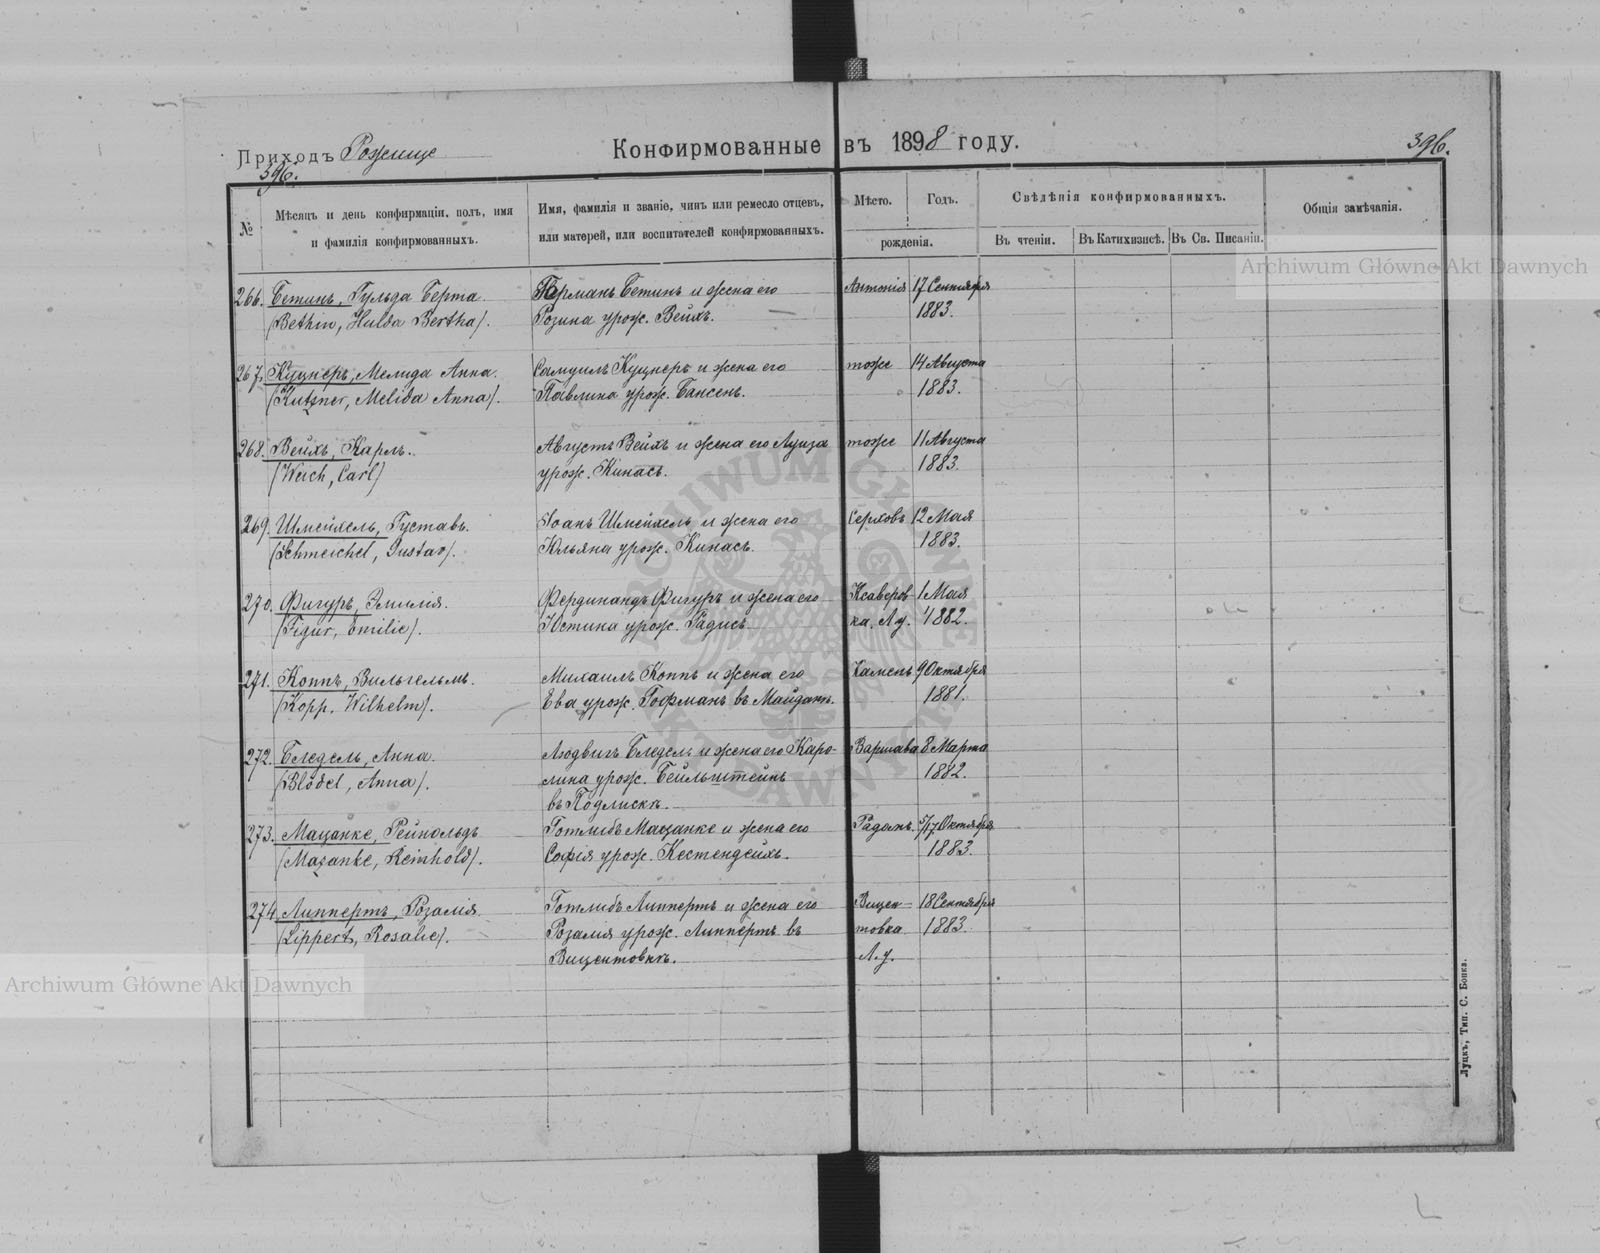 Приходъ Рожище
Конфирмованные въ 1898 году.
396.
396.
№
Мѣсяцъ и день конфирмаціи, полъ, имя
и фамилія конфирмованныхъ.
Имя, фамилія и званіе, чинъ или ремесло отцевъ,
или матерей, или воспитателей конфирмованныхъ.
Мѣсто.
Годъ.
рожденія.
Свѣдѣнія конфирмованныхъ.
Въ чтеніи.
Въ Катихизисѣ.
Въ Св. Писаніи.
Общія замѣчанія.
266. Бетинъ, Гульда Берта. Германъ Бетинъ и жена его Антонія 17 Сентября
(Bethin, Hulda Bertha). Розина урож. Вейхъ. 1883.
267. Куцнеръ, Мелида Анна. Самуилъ Куцнеръ и жена его тоже 14 Августа
(Kutzner, Melida Anna). Павлина урож. Бансенъ. 1883.
268. Вейхъ, Карлъ. Августъ Вейхъ и жена его Луиза тоже 11 Августа
(Weich, Carl) урож. Кинасъ. 1883.
269. Шмейхель, Густавъ. Іоанъ Шмейхель и жена его Серховъ 12 Мая
(Schmeichel, Gustav). Юльяна урож. Кинасъ. 1883.
270. Фигуръ, Эмилія. Фердинандъ Фигуръ и жена его Ксаверов- 1 Мая
(Figur, Emilie). Юстина урож. Радисъ. ка, Л.у. 1882.
271. Коппъ, Вильгельмъ. Михаилъ Коппъ и жена его Камень 9 Октября
(Kopp, Wilhelm). Ева урож. Гофманъ въ Майданѣ. 1881.
272. Бледель, Анна. Людвигъ Бледель и жена его Каро- Варшава 8 Марта
(Blödel, Anna). лина урож. Бейльштейнъ 1882.
въ Подлискѣ.
273. Мацанке, Рейнольдъ Готлибъ Мацанке и жена его Радомъ. 5/17 Октября
(Mazanke, Reinhold). Софія урож. Кестендейхъ. 1883.
274. Липпертъ, Розалія. Готлибъ Липпертъ и жена его Вицен- 18 Сентября
(Lippert, Rosalie). Розалія урож. Липпертъ въ товка 1883.
Вицентовкѣ. Л.у.
Луцкъ, Тип. С. Бонка.
Archiwum Główne Akt Dawnych
Archiwum Główne Akt Dawnych
ARCHIWUM GŁÓWNE AKT DAWNYCH